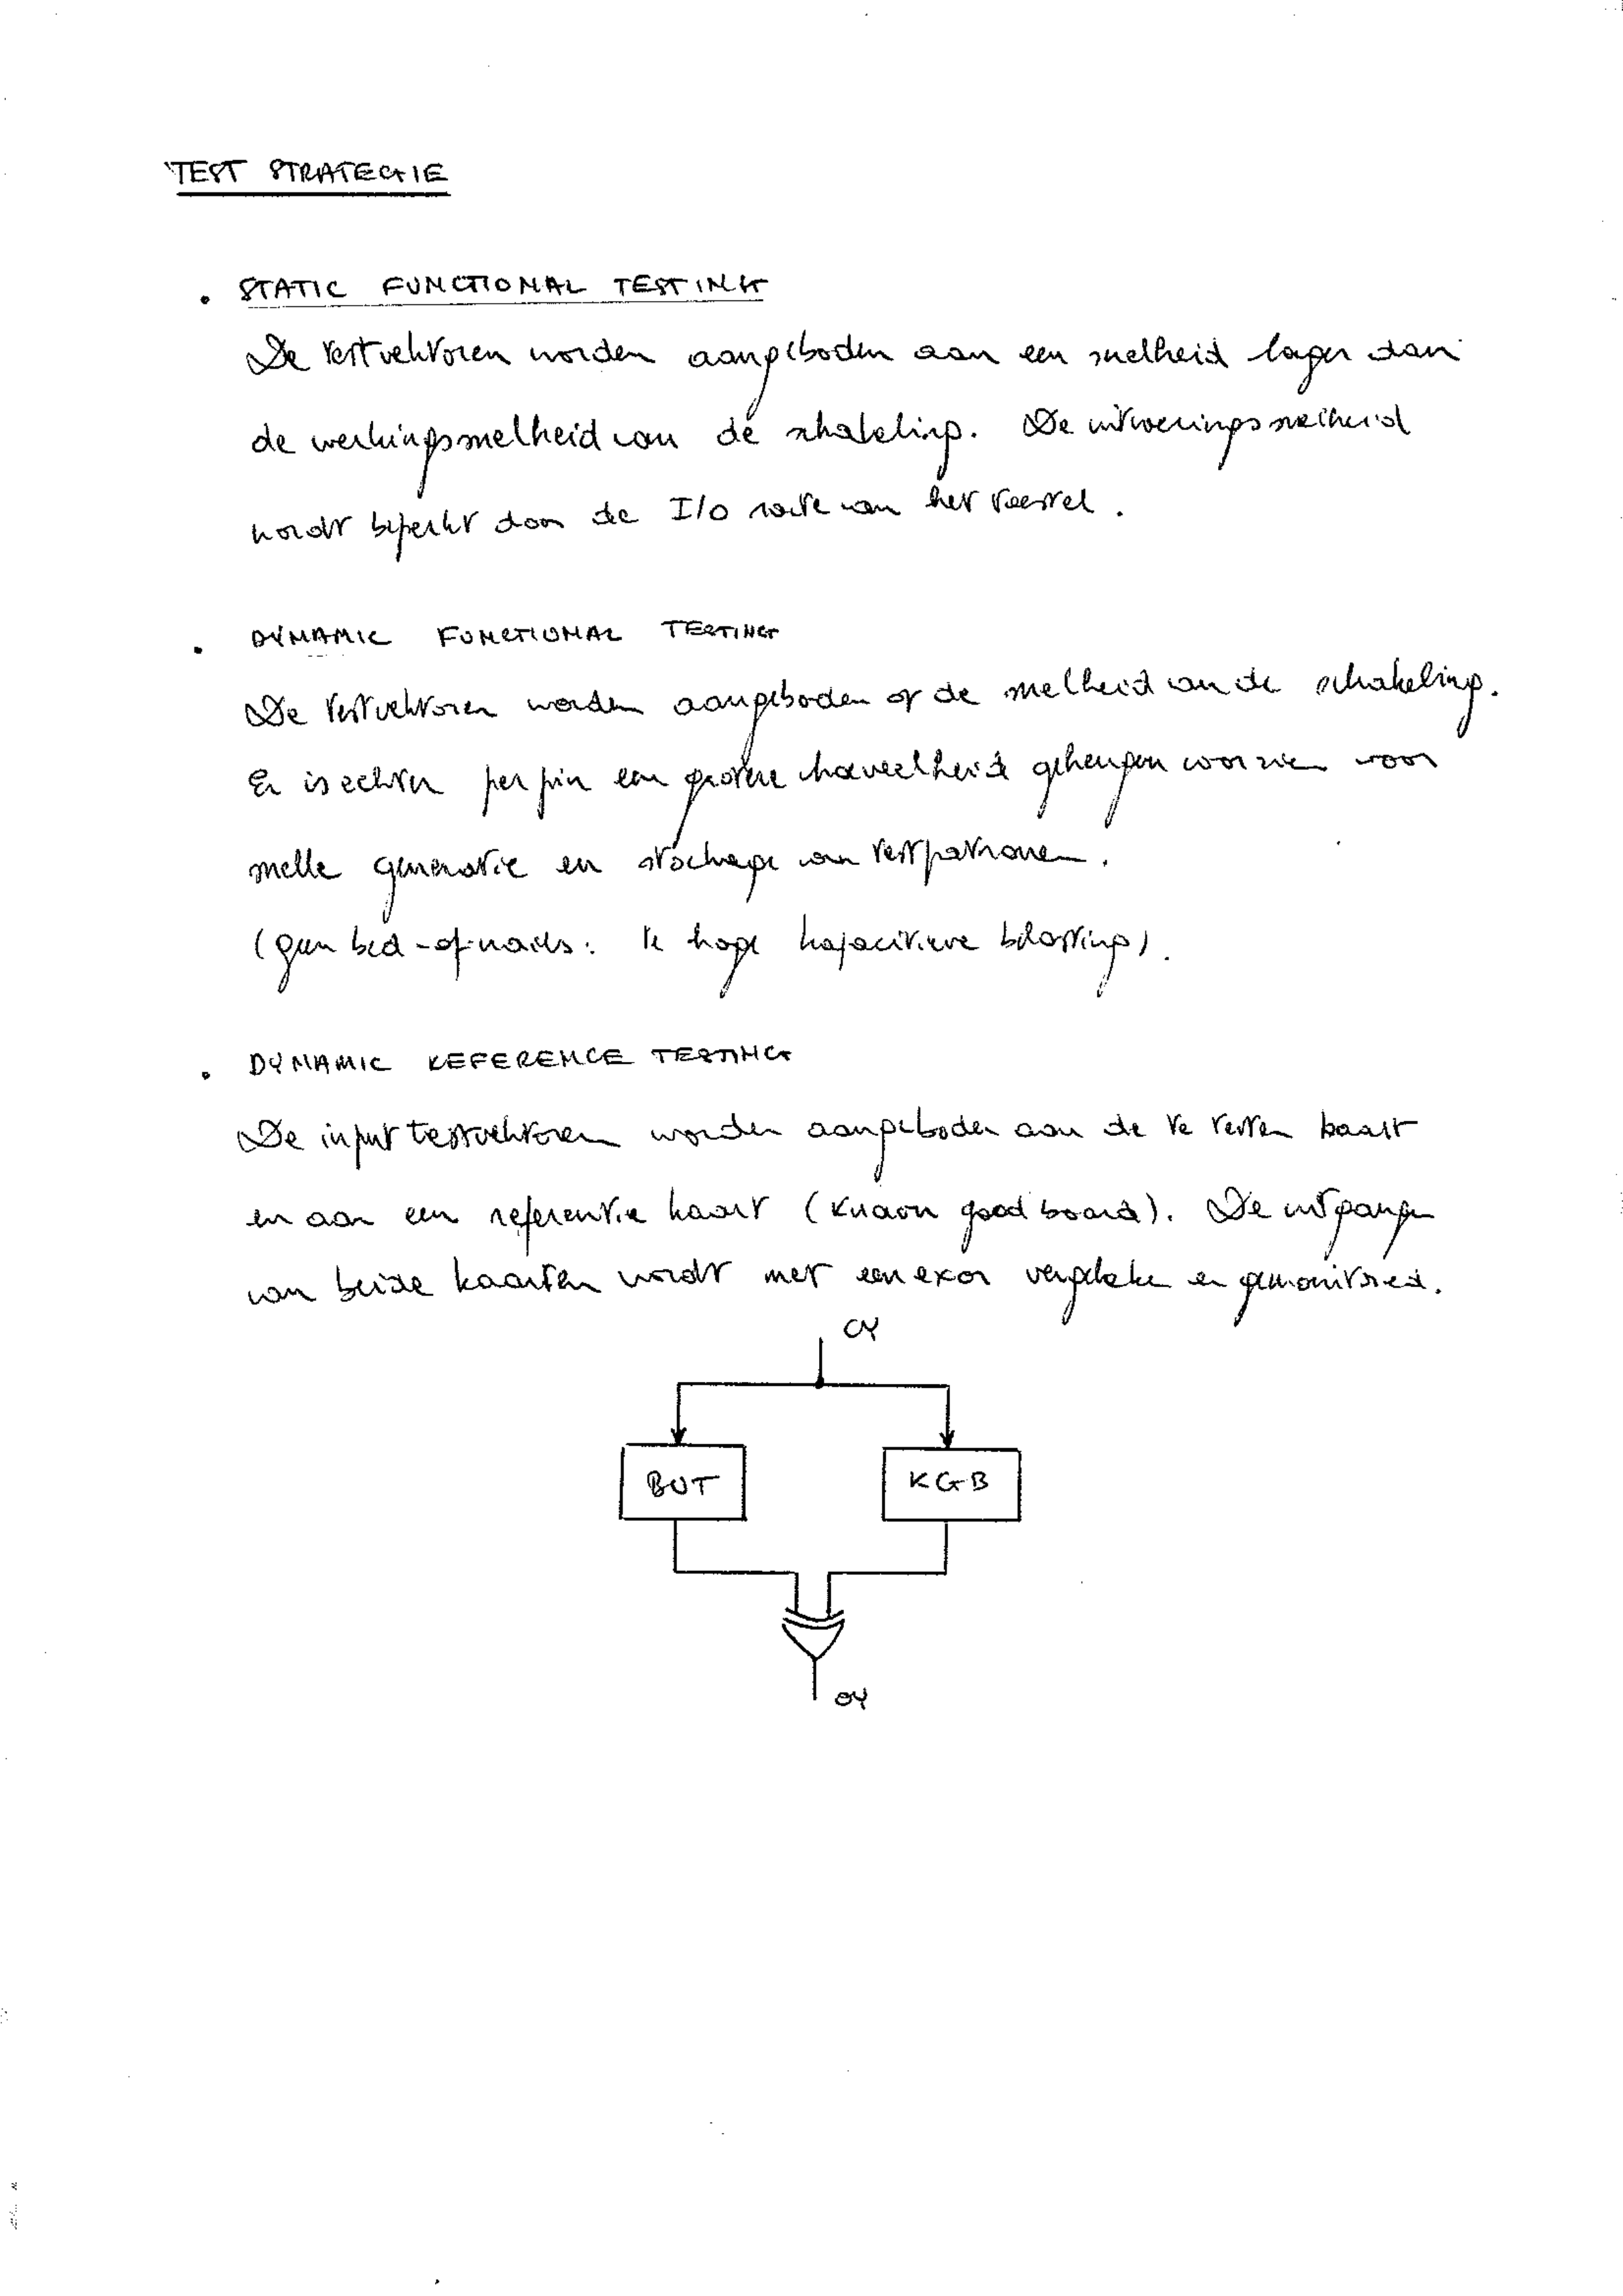 TEST STRATEGIE
. STATIC FUNCTIONAL TESTING
De testvektoren worden aangeboden aan een snelheid lager dan
de werkingssnelheid van de schakeling. De uitvoeringssnelheid
wordt beperkt door de I/O rate van het toestel.
. DYNAMIC FUNCTIONAL TESTING
De testvektoren worden aangeboden op de snelheid van de schakeling.
Er is echter per pin een grotere hoeveelheid geheugen voorzien voor
snelle generatie en stockage van testpatronen.
(geen bed-of-nails: te hoge kapacitieve belasting).
. DYNAMIC REFERENCE TESTING
De input testvektoren worden aangeboden aan de te testen kaart
en aan een referentie kaart (known good board). De uitgangen
van beide kaarten wordt met een exor vergeleken en gemonitored.
BUT KGB